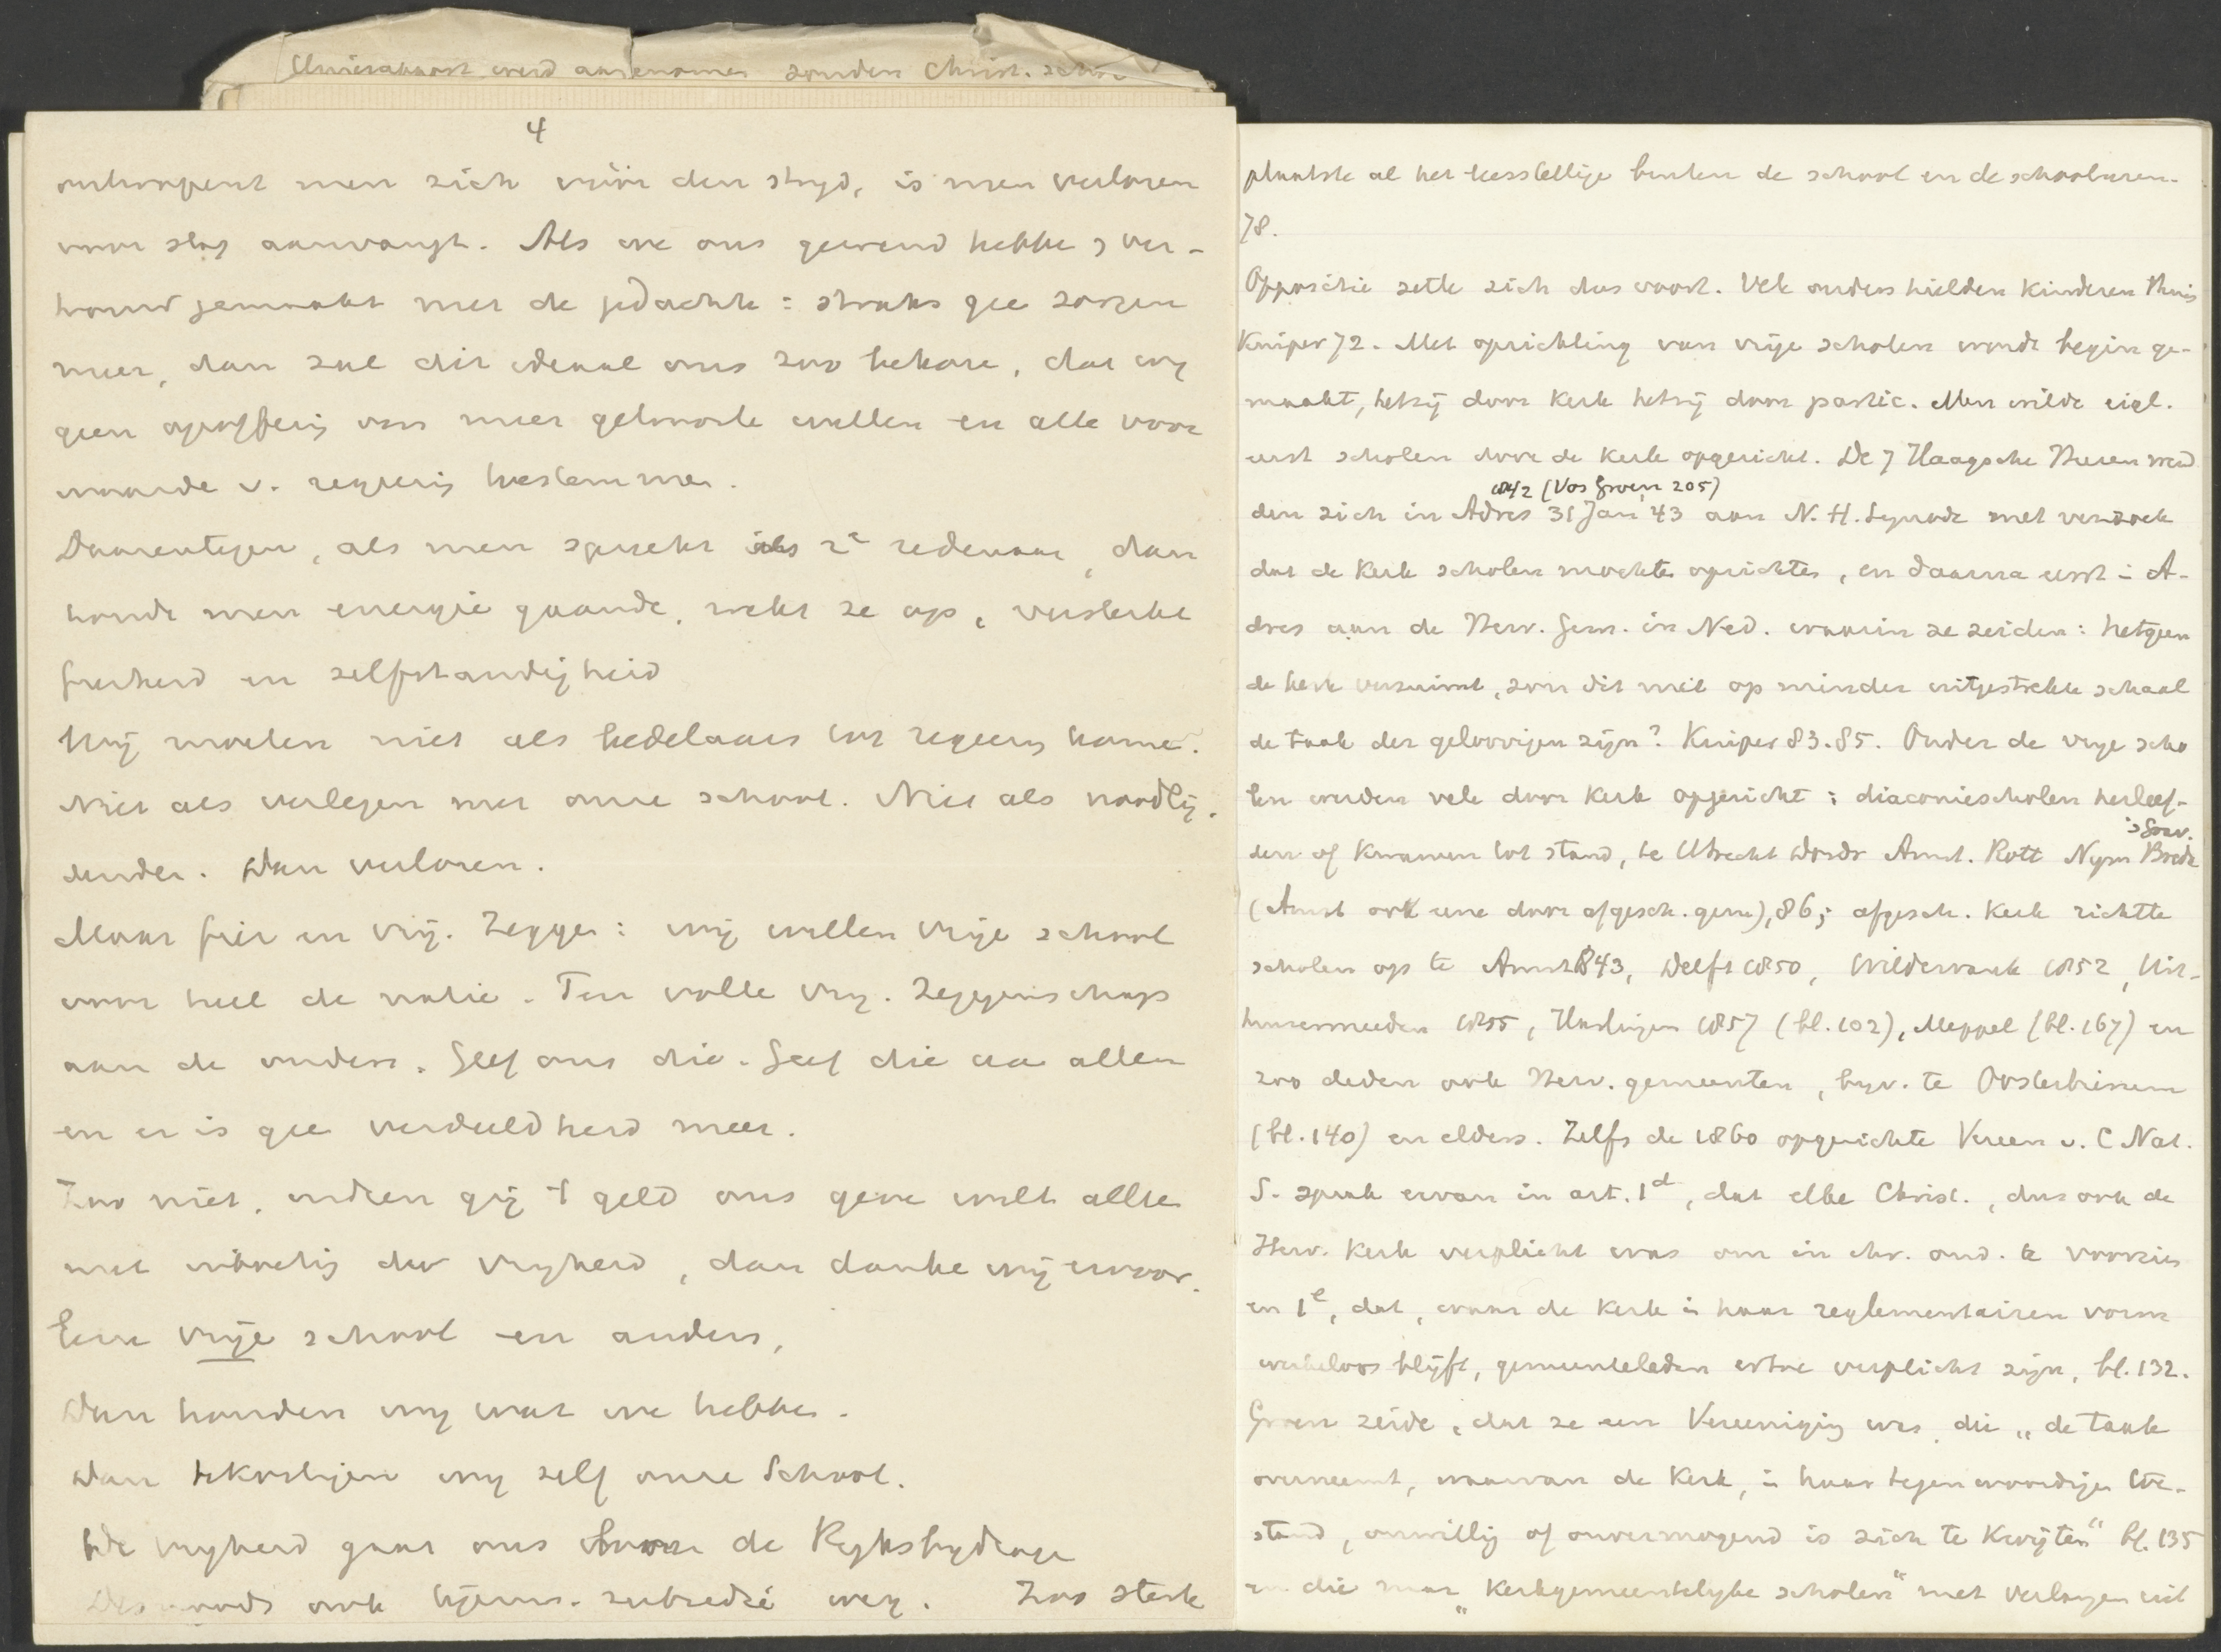 werd aangenomen zonder Christ. school
4
ontwapent men zich vóór den strijd, is men verloren
voor slag aanvangt. Als we ons gewend hebbe, ver-
trouwd gemaakt met de gedachte : straks gee zorgen
meer, dan zal dit ideaal ons zoo bekore, dat wij
geen opoffering ons meer getrooste willen en alle voor
waarde v. regeering toestemmen.
Daarentegen, als men spreekt als 2e redenaar, dan
houdt men energie gaande, wekt ze op, versterkt
fierheid en zelfstandigheid
Wij moeten niet als bedelaars tot regeering kome.
Niet als verlegen met onze school. Niet als noodlij.
dende. Dan verloren.
Maar fier en vrij. Zegge : wij willen vrije school
voor heel de natie. Ten volle vrij. Zeggenschap
aan de ouders. Geef ons die. Geef die aa allen
en er is gee verdeeldheid meer.
Zoo niet, indien gij 't geld ons geve wilt alleen
met inboeting der vrijheid, dan danke wij ervoor.
Eene vrije school en anders,
Dan houden wij wat we hebbe.
Dan bekostigen wij zelf onze School.
De vrijheid gaat ons boven de Rijksbijdrage
Desnoods ook subsidie weg. Zoo sterk
plaatste al het leerstellige buiten de school en de schooluren.
78.
Oppositie zette zich dus voort. Vele ouders hielden kinderen thuis
Kuiper 72. Met oprichting van vrije scholen wordt begin ge-
maakt, hetzij door kerk hetzij door partic. Men wilde eigl.
eerst scholen door de kerk opgericht. De 7 Haagsche Heeren wend
1842 (Vos Groen 205)
den zich in Adres 31 Jan '43 aan N. H. Synode met verzoek
dat de kerk scholen mochte oprichte, en daarna eerst i A-
dres aan de Herv. Gem. in Ned. waarin ze zeiden : hetgeen
de kerk verzuimt, zou dit niet op minder uitgestrekte schaal
de taak der geloovigen zijn? Kuiper 83.85. Onder de vrije scho
len werden vele door kerk opgericht ; diaconiescholen herleef-
's Grav.
den of kwamen tot stand, te Utrecht Dordr Amst. Rott Nijm Breda
(Amst ook eene door afgesch. gem), 86; afgesch. kerk richtte
scholen op te Amst 1843, Delft 1850, Wildervank 1852, Uit-
huizermeeden 1855, Harlingen 1857 (bl. 102), Meppel (bl. 167) en
zoo deden ook Herv. gemeenten, bijv. te Oosterbierum
(bl. 140) en elders. Zelfs de 1860 opgerichte Vereen v. C Nat.
S. sprak ervan in art. 1d, dat elke Christ., dus ook de
Herv. Kerk verplicht was om in chr. ond. te voorzien
en 1e, dat, waar de kerk i haar reglementairen vorm
werkeloos blijft, gemeenteleden ertoe verplicht zijn, bl. 132.
Groen zeide, dat ze een Vereeniging was, die „de taak
overneemt, waarvan de Kerk, i haar tegenwoordige toe-
stand, onwillig of onvermogend is zich te kwijten" bl. 135
en die naar „kerkgemeentelijke scholen" met verlangen uit